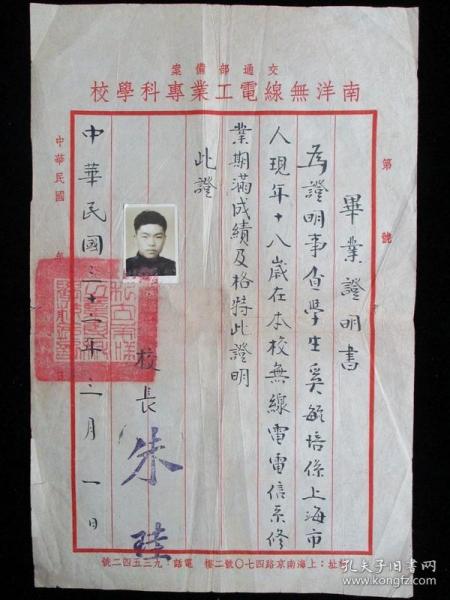 交通部備案
南洋無線電工業專科學校
第 號
畢業證明書
為證明事查學生奚毓培係上海市
人現年十八歲在本校無線電電信系修
業期滿成績及格特此證明
此證
校長 朱
中華民國三十二年三月一日
中華民國 年
址：上海南京路四七〇號二樓 電話：九三五四二號
孔夫子旧书网